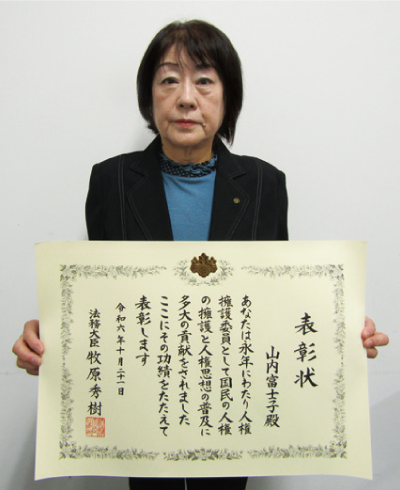 表彰状
山内富士子殿
あなたは永年にわたり人権
擁護委員として国民の人権
の擁護と人権思想の普及に
多大の貢献をされました
ここにその功績をたたえて
表彰します
令和六年十月二十一日
法務大臣 牧原秀樹